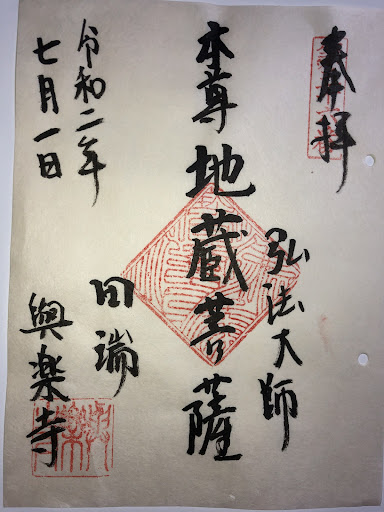 奉拝
弘法大師
本尊地蔵菩薩
田端
興楽寺
令和二年
七月一日